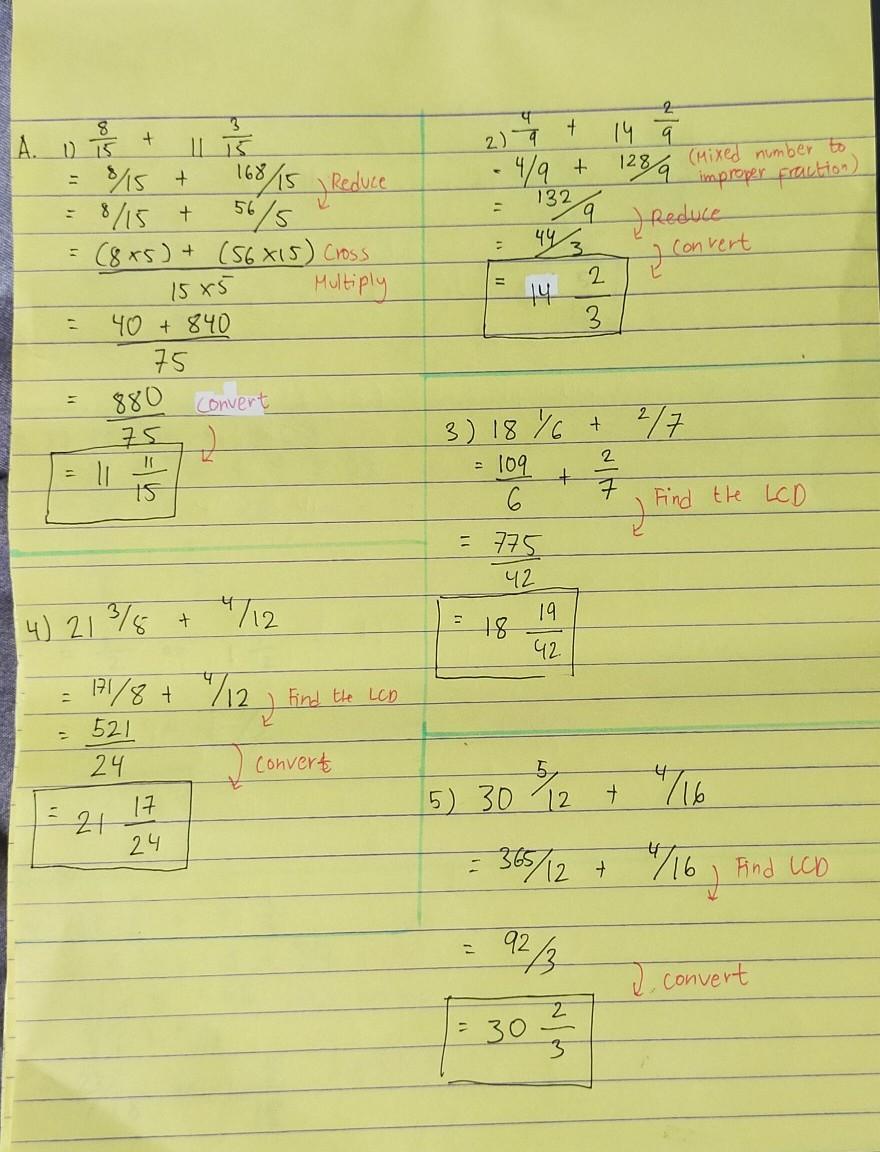 A. 1) 8/15 + 11 3/15
= 8/15 + 168/15 Reduce
= 8/15 + 56/5
= (8×5) + (56×15) Cross
15×5 Multiply
= 40 + 840
75
= 880 Convert
75
= 11 11/15
2) 4/9 + 14 2/9
= 4/9 + 128/9 (Mixed number to
improper fraction)
= 132/9 Reduce
= 44/3 Convert
= 14 2/3
3) 18 1/6 + 2/7
= 109/6 + 2/7 Find the LCD
= 775/42
= 18 19/42
4) 21 3/8 + 4/12
= 171/8 + 4/12 Find the LCD
= 521/24 Convert
= 21 17/24
5) 30 5/12 + 4/16
= 365/12 + 4/16 Find LCD
= 92/3 Convert
= 30 2/3